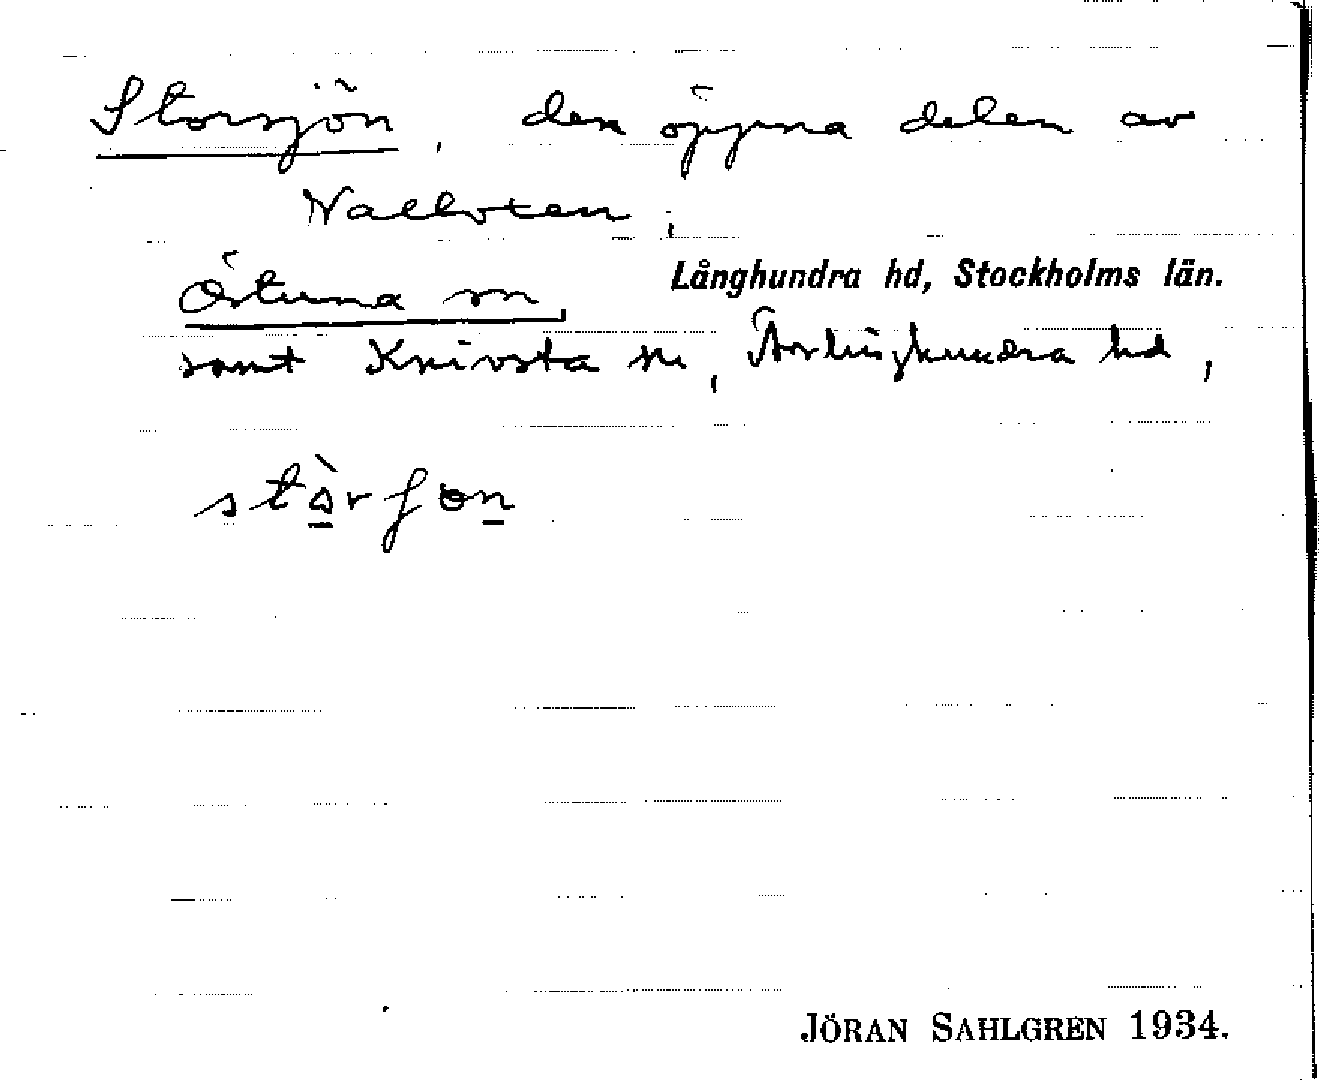 Storsjön, den öppna delen av
Valloxen,
Östuna sn, Långhundra hd, Stockholms län.
samt Knivsta sn, Ärlinghundra hd,
JÖRAN SAHLGREN 1934.